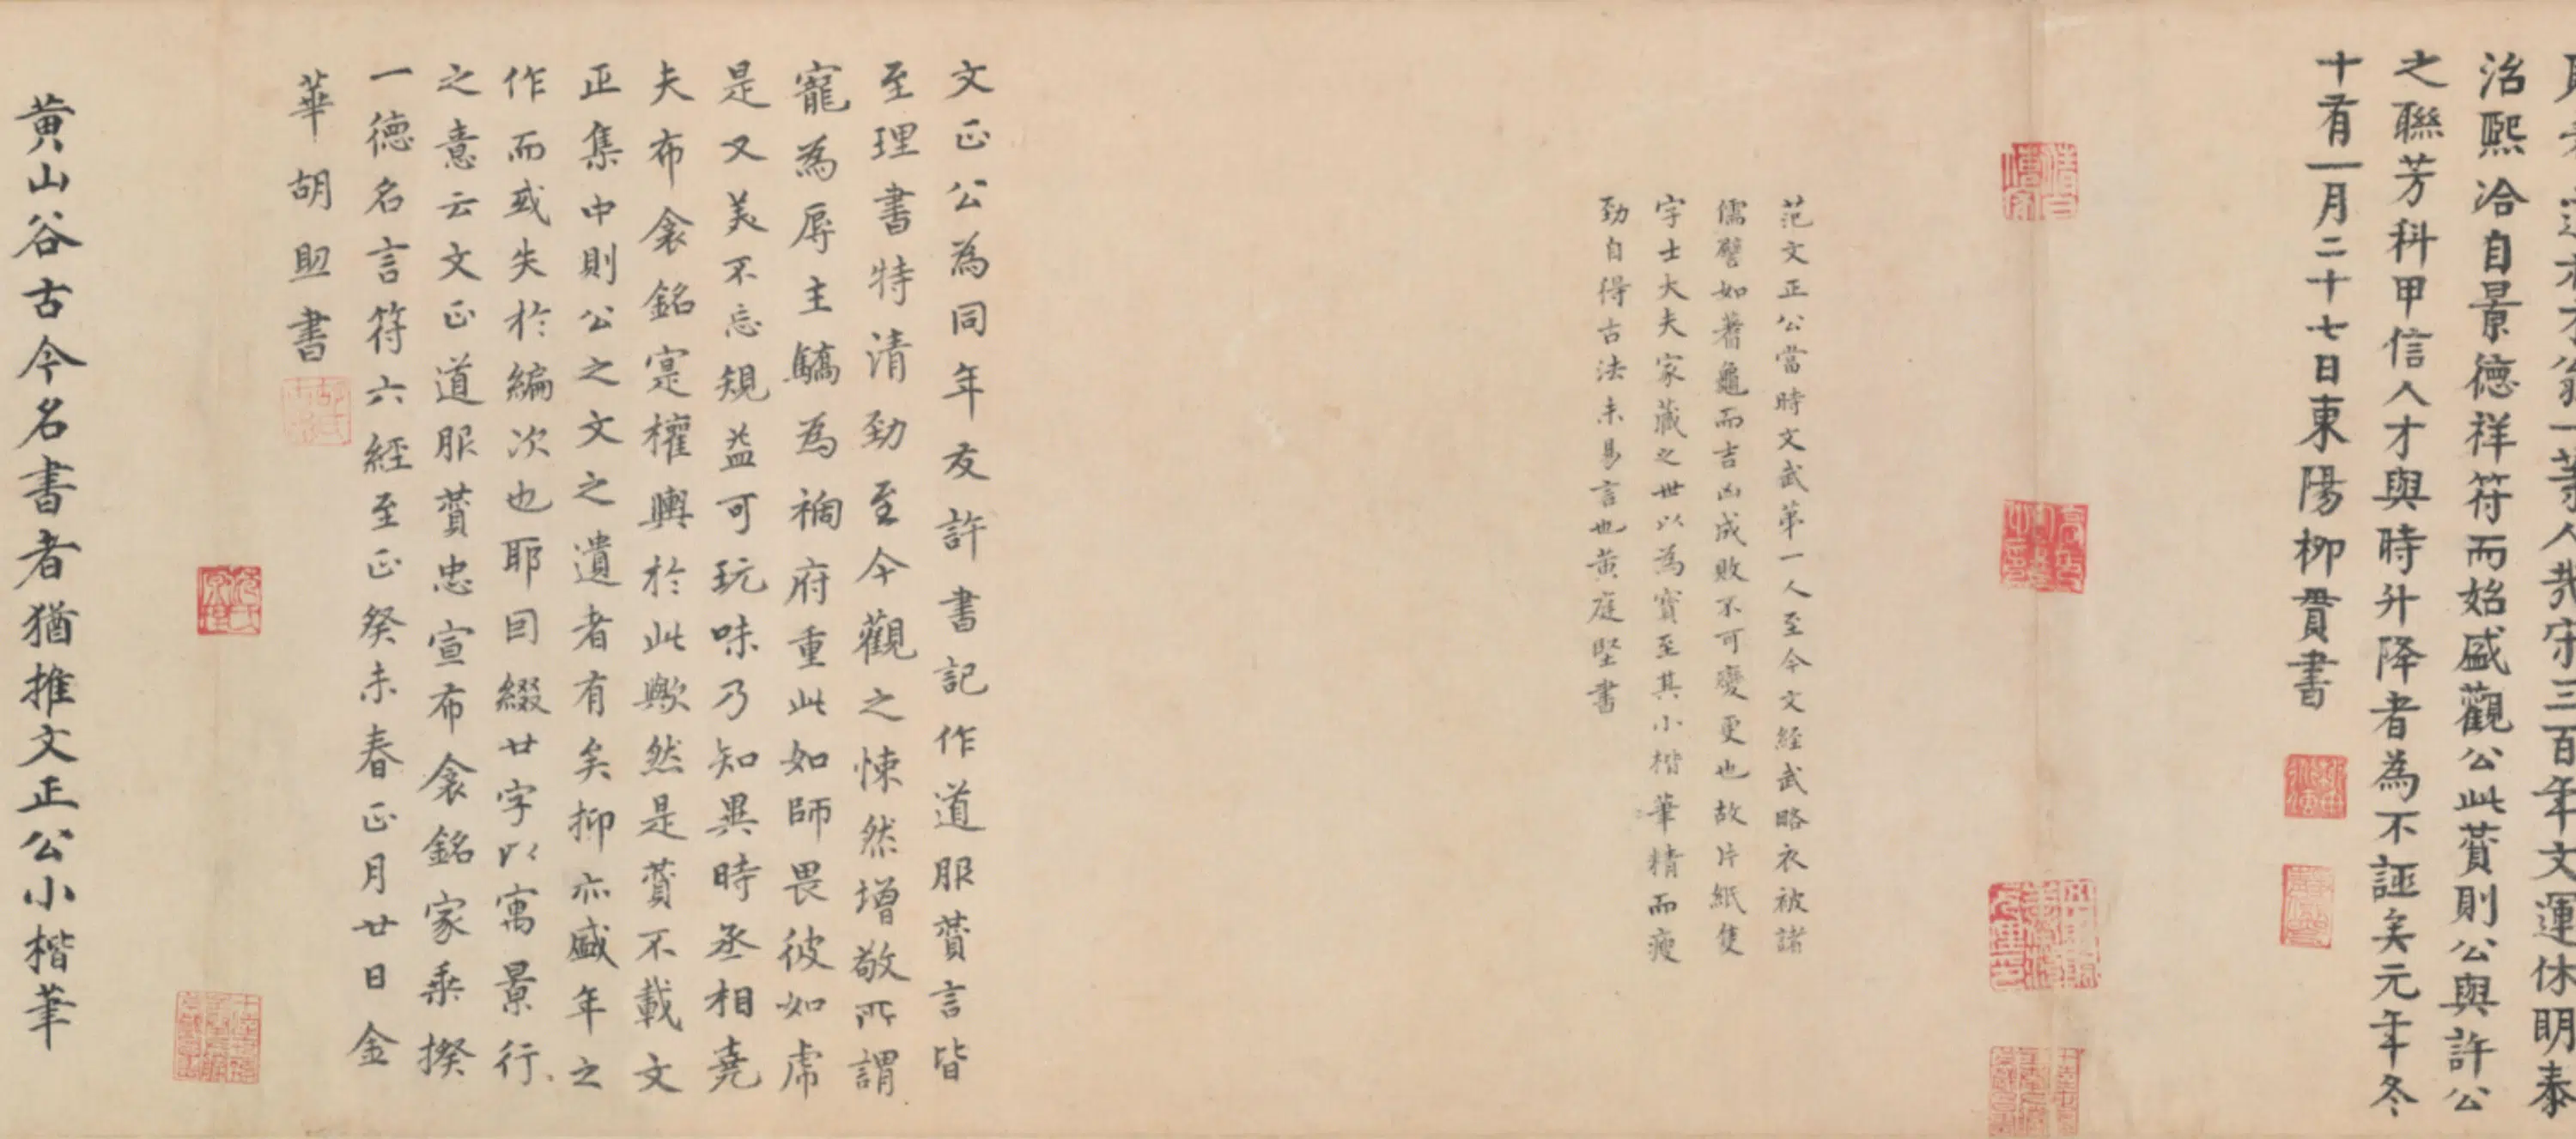 一等人哉宋三百年文運休明泰
治熙洽自景德祥符而始盛觀公此賛則公與許公
之聯芳科甲信人才與時升降者為不誣矣元年冬
十有一月二十七日東陽柳貫書
范文正公當時文武第一人至今文經武略衣被諸
儒譬如蓍龜而吉凶成敗不可變更也故片紙隻
字士大夫家藏之世以為寶至其小楷筆精而瘦
勁自得古法未易言也黃庭堅書
文正公為同年友許書記作道服賛言皆
至理書特清勁至今觀之悚然增敬所謂
寵為辱主驕為禍府重此如師畏彼如虎
是又美不忘規益可玩味乃知異時丞相堯
夫布衾銘寔權輿於此歟然是賛不載文
正集中則公之文之遺者有矣抑亦盛年之
作而或失於編次也耶因綴廿字以寓景行
之意云文正道服賛忠宣布衾銘家乘揆
一德名言符六經至正癸未春正月廿日金
華胡助書
黃山谷古今名書者猶推文正公小楷筆